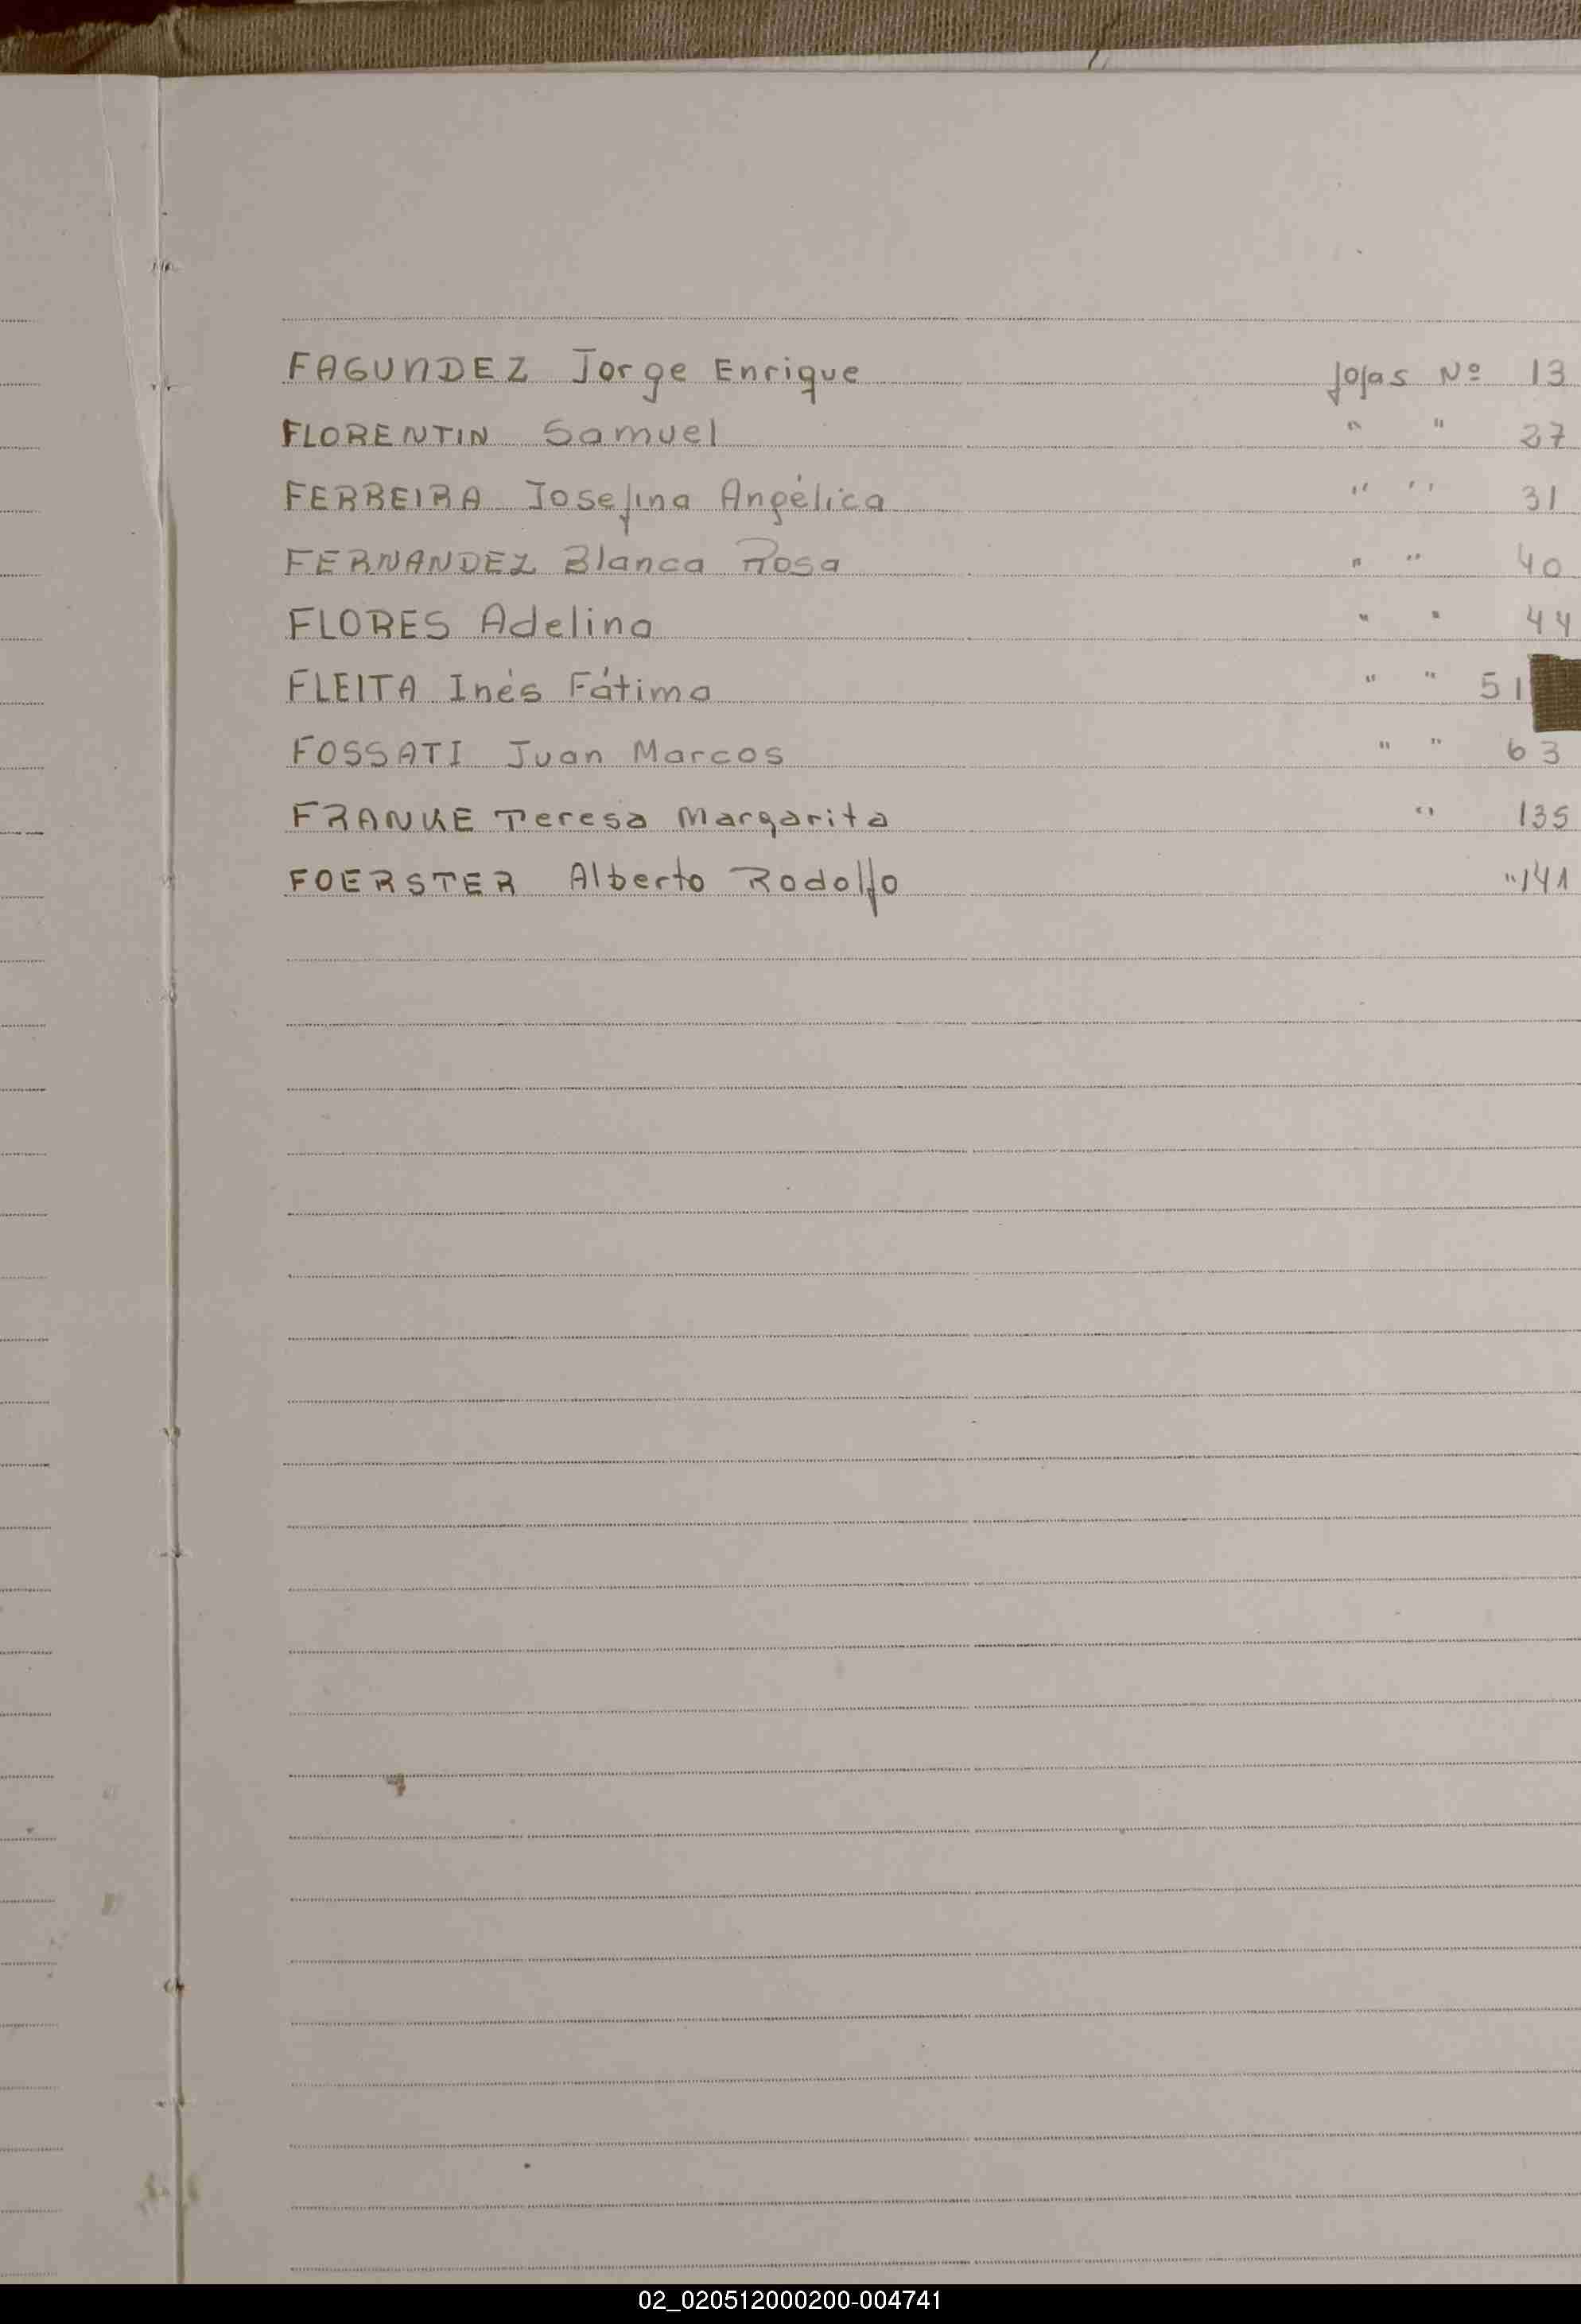 FAGUNDEZ Jorge Enrique fojas Nº 13
FLORENTIN Samuel " " 27
FERREIRA Josefina Angélica " " 31
FERNANDEZ Blanca Rosa " " 40
FLORES Adelina " " 44
FLEITA Inés Fátima " " 51
FOSSATI Juan Marcos " " 63
FRANKE Teresa Margarita " 135
FOERSTER Alberto Rodolfo " 141
02_020512000200-004741